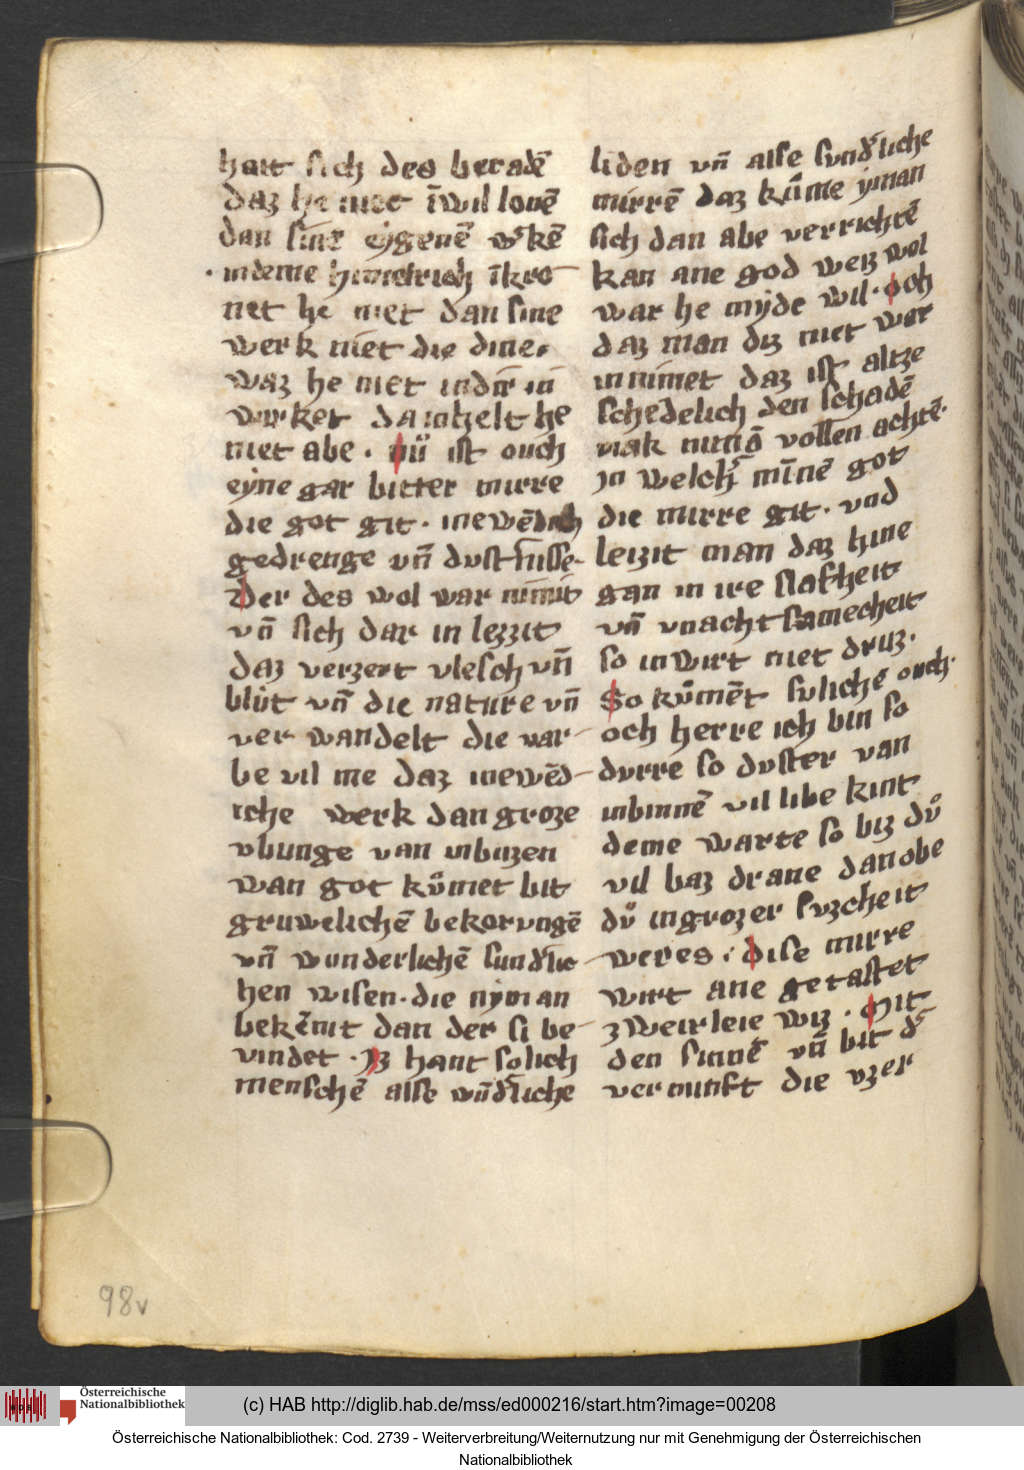 hait sich des beradē
daz he niet īwil louē
dan sine eygenē wʼkē
indeme himelrich īkro
net he niet dan sine
werk niet die dine
waz he niet indir in
wirket da inhelt he
niet abe. nü ist ouch
eyne gar bitter mirre
die got git. inewēdich
gedrenge vn̄ dustʼnisse.
Der des wol war nimit
vn̄ sich dar in lezzit
daz verzert vlesch vn̄
blut vn̄ die nature vn̄
ver wandelt die var
be vil me daz inewēd
iche werk dan groze
vbunge van inbuzen
wan got kůmet bit
gruwelichē bekorungē
vn̄ wunderlichē sundʼlic
hen wisen. die nyman
bekēnit dan der si be
vindet. Iz hant solich
menschē alse wūdʼliche
liden vn̄ alse sundʼliche
mirrē daz kůme yman
sich dan abe verrichtē
kan ane god weiz wol
war he mide wil. Och
daz man diz niet war
innimet daz ist altze
schedelich den schadē
mak niman vollen achtē.
In welchʼ mīnē got
die mirre git. vnd
leizit man daz hine
gan in ire slafheit
vn̄ vnachtsamecheit
so inwirt niet druz.
So kůmēt suliche ouch.
och herre ich bin so
durre so duster van
inbinnē vil libe kint
deme warte so biz dů
vil baz drane dan obe
dů ingrozer suzcheit
weres. Dise mirre
wirt ane getastet
zweirleie wiz. Mit
den sinnē vn̄ bit dʼ
vernunft die vzer
98v
Österreichische
Nationalbibliothek
(c) HAB http://diglib.hab.de/mss/ed000216/start.htm?image=00208
Österreichische Nationalbibliothek: Cod. 2739 - Weiterverbreitung/Weiternutzung nur mit Genehmigung der Österreichischen
Nationalbibliothek